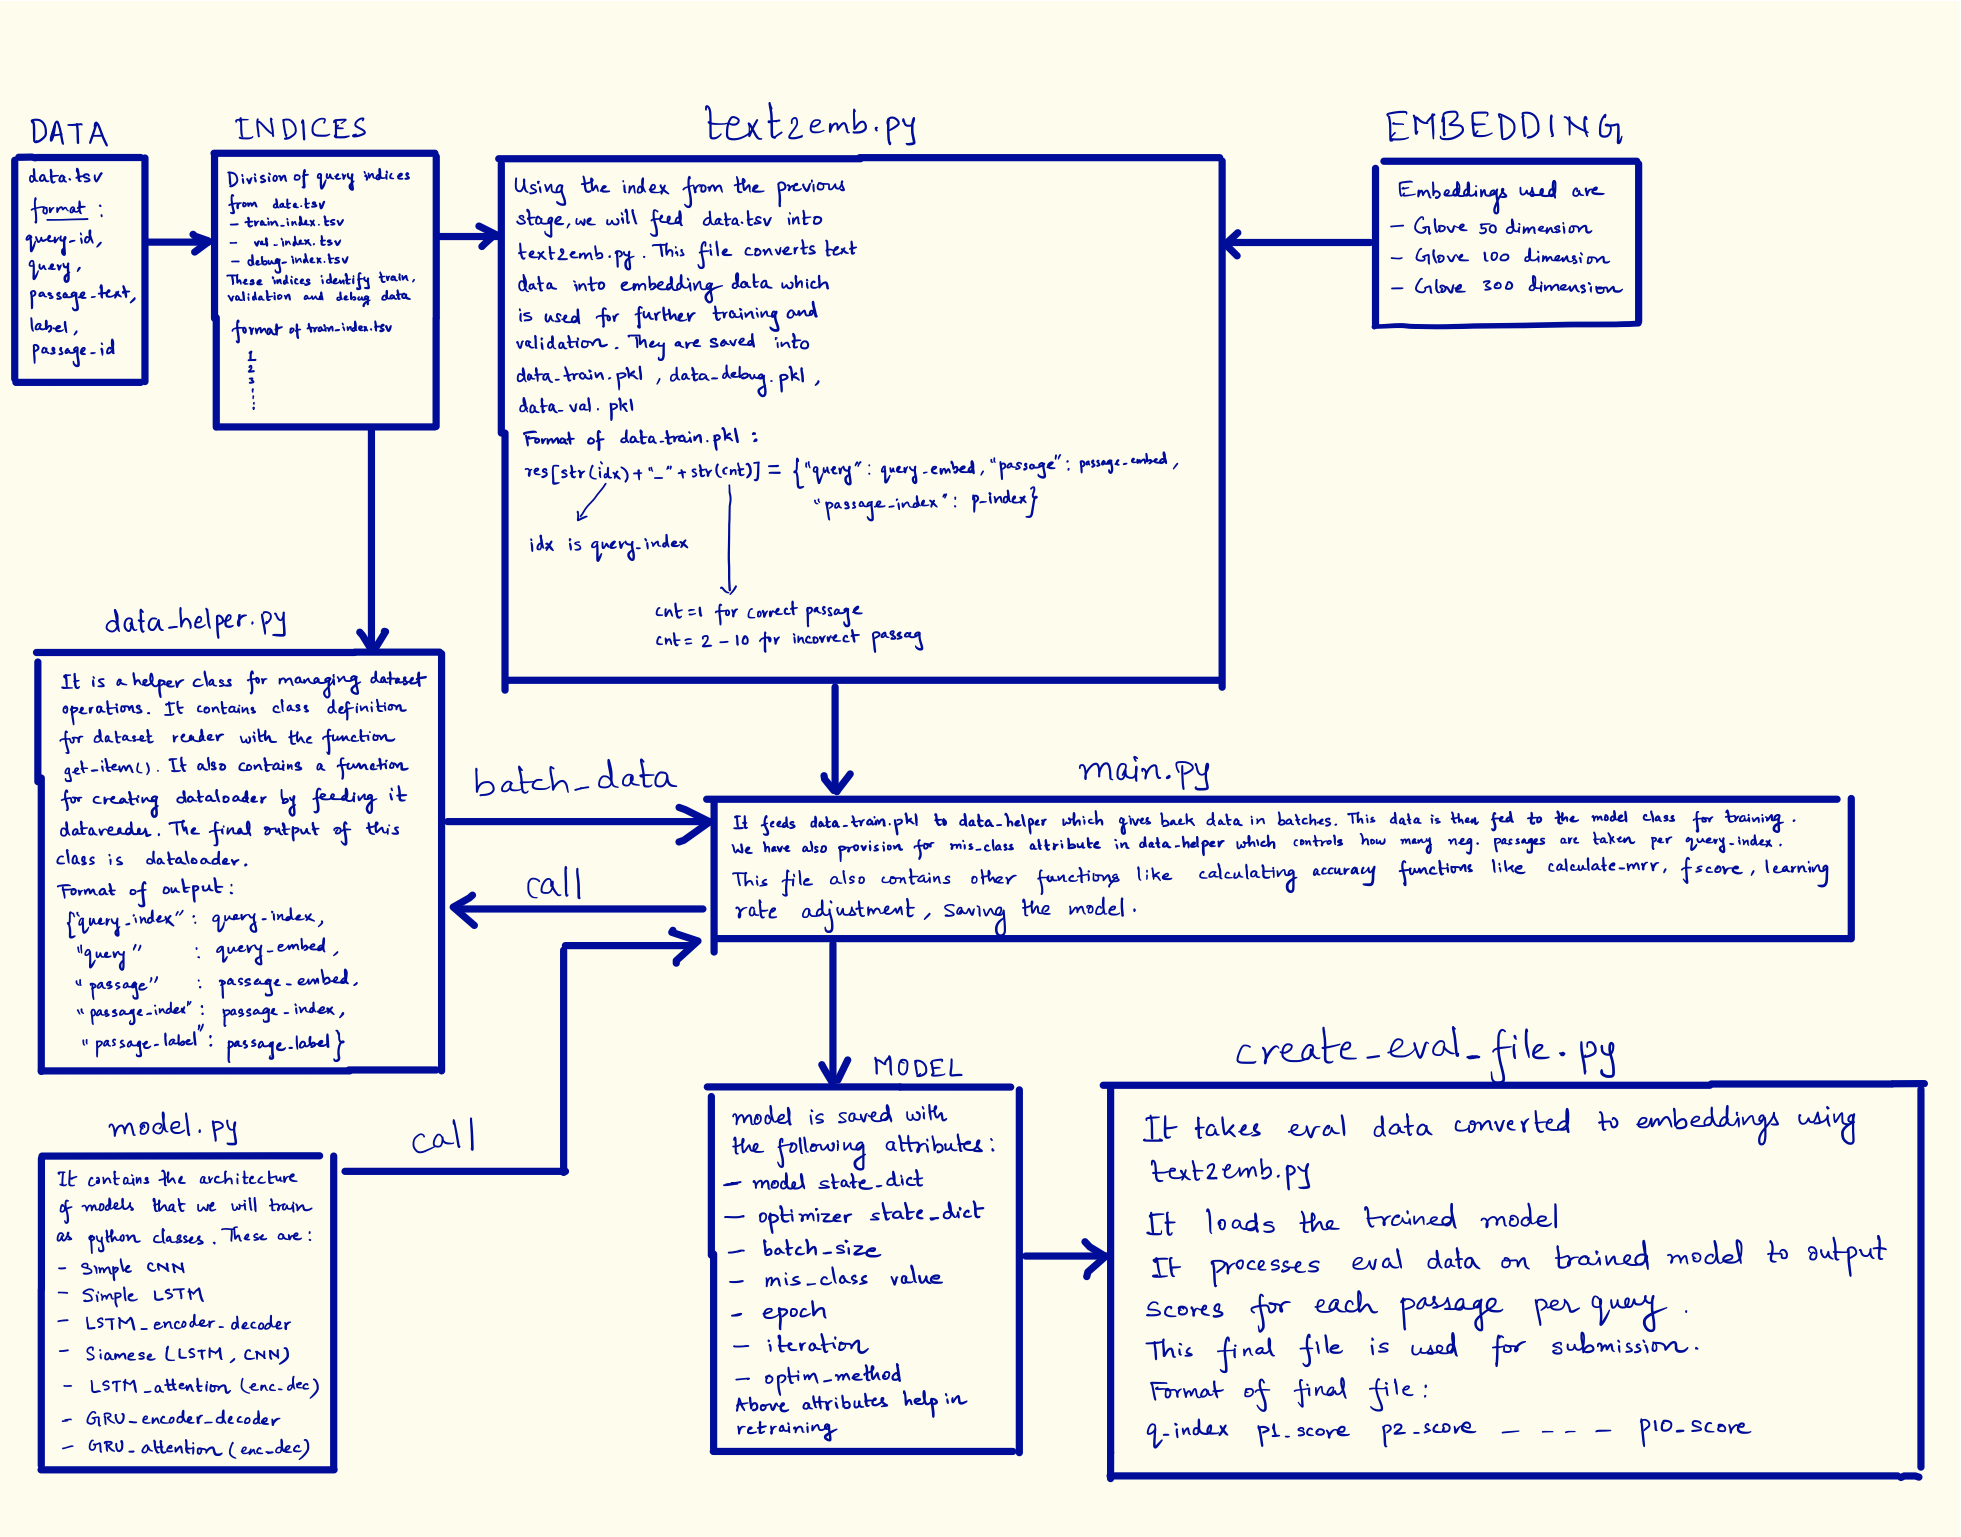 DATA
data.tsv
format :
query-id,
query,
passage-text,
label,
passage-id
INDICES
Division of query indices
from data.tsv
- train_index.tsv
- val_index.tsv
- debug-index.tsv
These indices identify train,
validation and debug data
format of train-index.tsv
1
2
3
text2emb.py
Using the index from the previous
stage, we will feed data.tsv into
text2emb.py. This file converts text
data into embedding data which
is used for further training and
validation. They are saved into
data-train.pkl, data-debug.pkl,
data-val.pkl
Format of data-train.pkl :
res[str(idx)+"_"+str(cnt)] = {"query": query-embed, "passage": passage-embed,
"passage_index": p-index}
idx is query-index
cnt=1 for correct passage
cnt= 2 - 10 for incorrect passag
EMBEDDING
Embeddings used are
- Glove 50 dimension
- Glove 100 dimension
- Glove 300 dimension
data_helper.py
It is a helper class for managing dataset
operations. It contains class definition
for dataset reader with the function
get-item(). It also contains a function
for creating dataloader by feeding it
datareader. The final output of this
class is dataloader.
Format of output:
{"query_index": query-index,
"query" : query_embed,
"passage" : passage_embed,
"passage-index": passage-index,
"passage-label": passage-label}
batch_data
call
main.py
It feeds data-train.pkl to data-helper which gives back data in batches. This data is then fed to the model class for training.
We have also provision for mis_class attribute in data-helper which controls how many neg. passages are taken per query-index.
This file also contains other functions like calculating accuracy functions like calculate-mrr, fscore, learning
rate adjustment, saving the model.
model.py
It contains the architecture
of models that we will train
as python classes. These are:
- Simple CNN
- Simple LSTM
- LSTM_encoder-decoder
- Siamese (LSTM, CNN)
- LSTM_attention (enc-dec)
- GRU_encoder-decoder
- GRU_attention (enc-dec)
call
MODEL
model is saved with
the following attributes:
- model state_dict
- optimizer state_dict
- batch_size
- mis_class value
- epoch
- iteration
- optim_method
Above attributes help in
retraining
create_eval_file.py
It takes eval data converted to embeddings using
text2emb.py
It loads the trained model
It processes eval data on trained model to output
scores for each passage per query.
This final file is used for submission.
Format of final file:
q-index p1-score p2-score - - - - p10-score